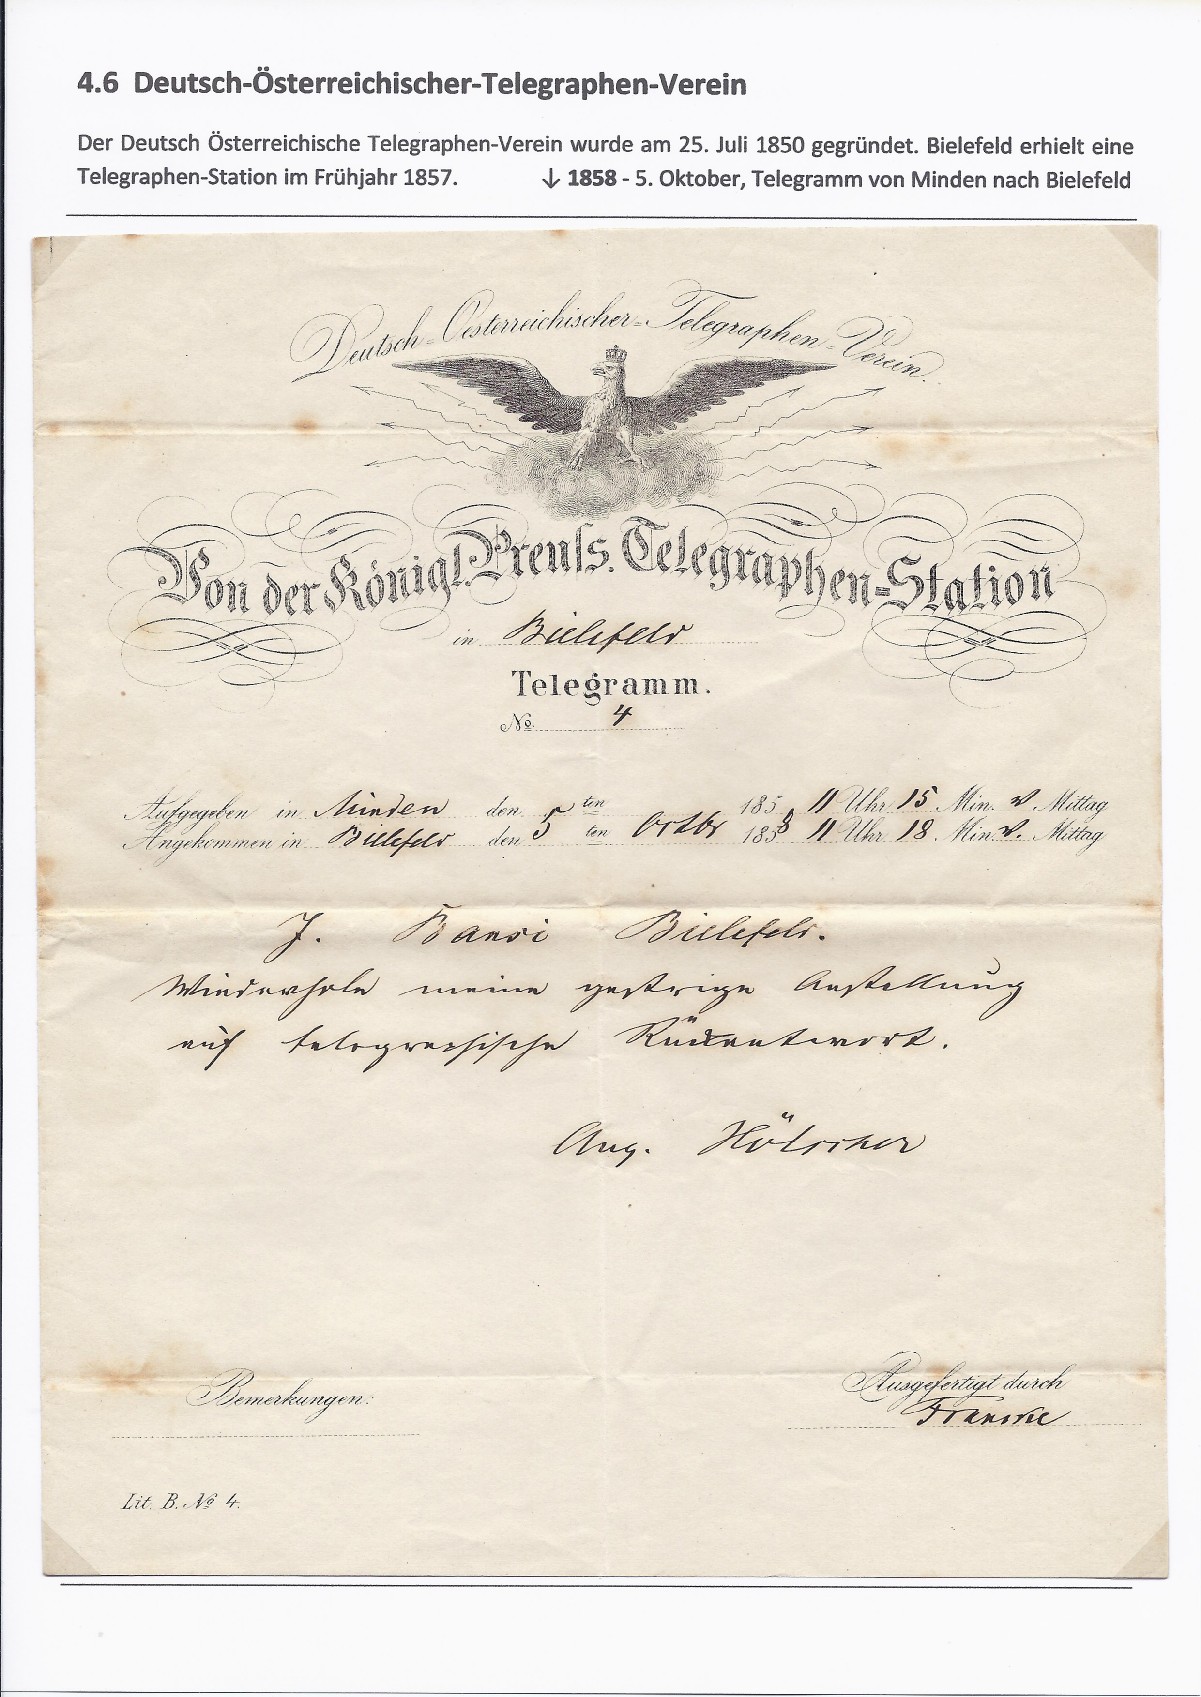 4.6 Deutsch-Österreichischer-Telegraphen-Verein
Der Deutsch Österreichische Telegraphen-Verein wurde am 25. Juli 1850 gegründet. Bielefeld erhielt eine
Telegraphen-Station im Frühjahr 1857. ↓ 1858 - 5. Oktober, Telegramm von Minden nach Bielefeld
Deutsch-Oesterreichischer-Telegraphen-Verein.
Von der Königl. Preuſs. Telegraphen-Station
in Bielefeld
Telegramm.
No. 4
Aufgegeben in Minden den 5 ten 185 11 Uhr 15 Min. V. Mittag
Angekommen in Bielefeld den 5 ten Octbr 1858 11 Uhr 18 Min. V. Mittag
J. Bansi Bielefeld.
Wiederhole meine gestrige Anstellung
auf telegraphische Rückantwort.
Aug. Hölscher
Bemerkungen:
Ausgefertigt durch
Francke
Lit. B. No 4.